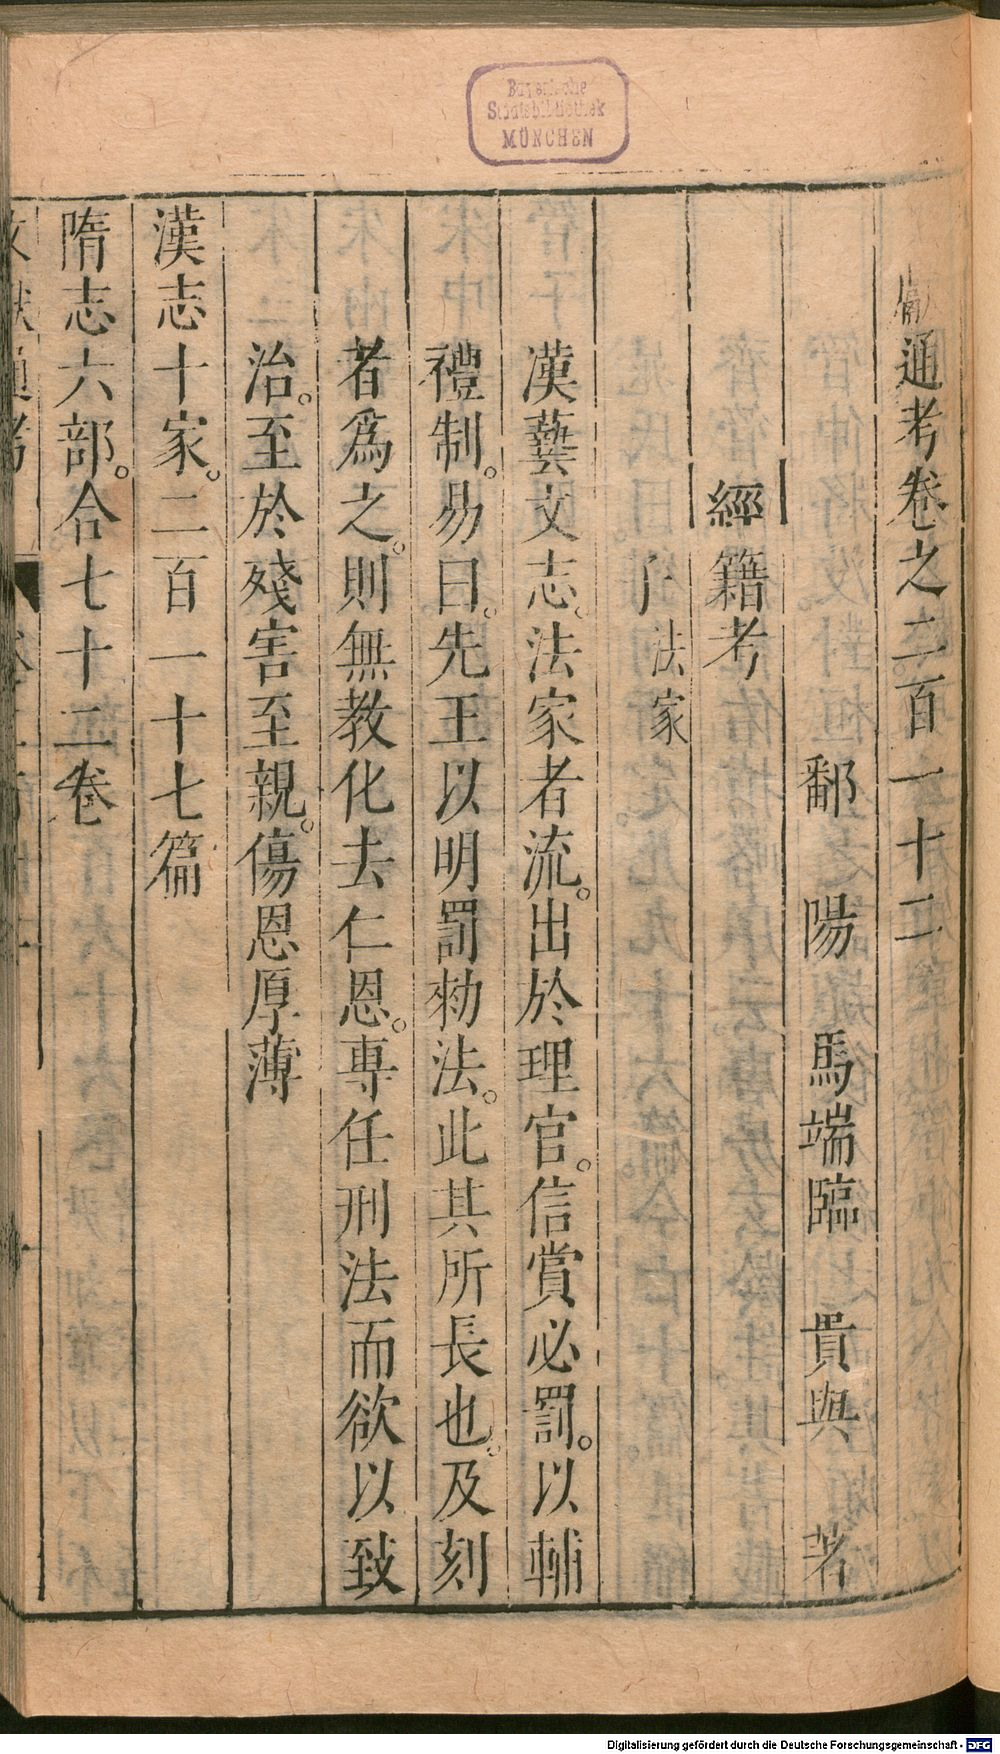 Bayerische
Staatsbibliothek
MÜNCHEN
獻通考卷之二百一十二
鄱陽馬端臨貴與著
經籍考
子法家
漢藝文志。法家者流。出於理官。信賞必罰。以輔
禮制。易曰。先王以明罰勑法。此其所長也。及刻
者爲之。則無教化去仁恩。專任刑法而欲以致
治。至於殘害至親。傷恩厚薄
漢志十家。二百一十七篇
隋志六部。合七十二卷
文獻通考
Digitalisierung gefördert durch die Deutsche Forschungsgemeinschaft - DFG